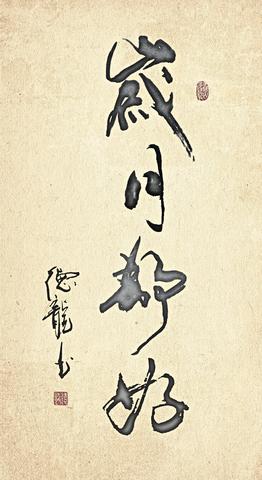 歲月靜好
德龍书